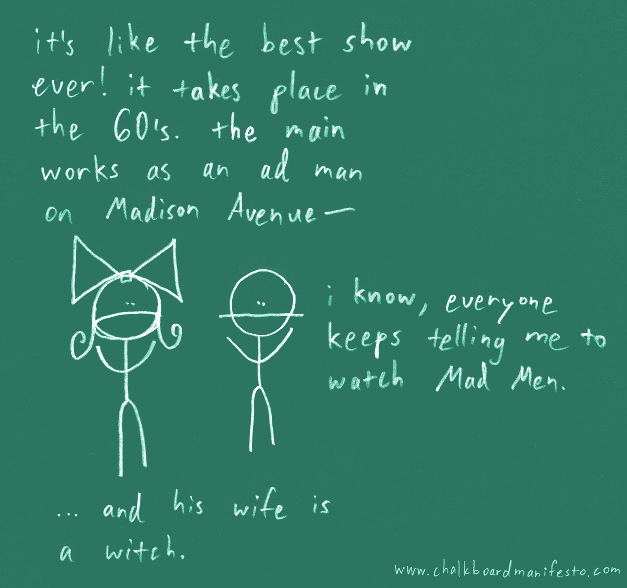 it's like the best show
ever! it takes place in
the 60's. the main
works as an ad man
on Madison Avenue—
i know, everyone
keeps telling me to
watch Mad Men.
... and his wife is
a witch.
www.chalkboardmanifesto.com